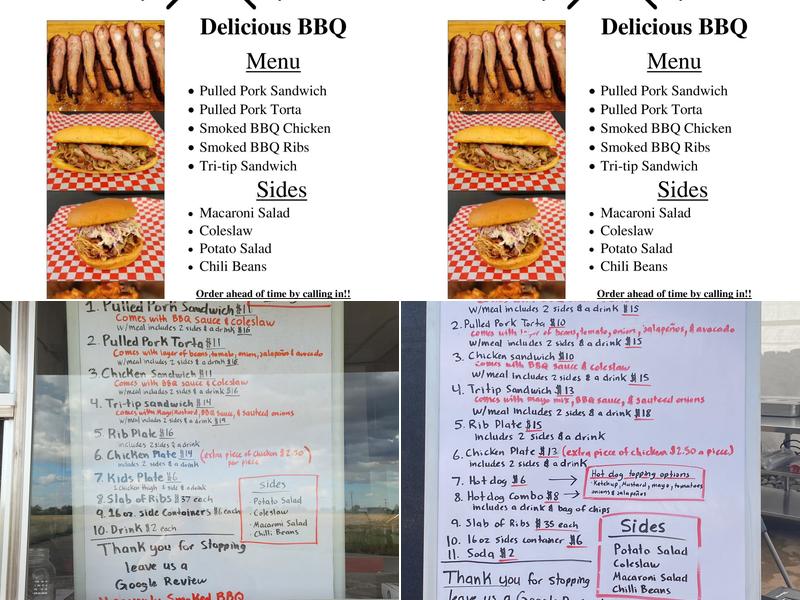 Delicious BBQ
Menu
• Pulled Pork Sandwich
• Pulled Pork Torta
• Smoked BBQ Chicken
• Smoked BBQ Ribs
• Tri-tip Sandwich
Sides
• Macaroni Salad
• Coleslaw
• Potato Salad
• Chili Beans
Order ahead of time by calling in!!
Delicious BBQ
Menu
• Pulled Pork Sandwich
• Pulled Pork Torta
• Smoked BBQ Chicken
• Smoked BBQ Ribs
• Tri-tip Sandwich
Sides
• Macaroni Salad
• Coleslaw
• Potato Salad
• Chili Beans
Order ahead of time by calling in!!
1. Pulled Pork Sandwich $11
Comes with BBQ sauce & coleslaw
w/meal includes 2 sides & a drink $16
2. Pulled Pork Torta $11
Comes with layer of beans, tomato, onion, jalapeño & avocado
w/meal includes 2 sides & a drink $16
3. Chicken Sandwich $11
Comes with BBQ sauce & Coleslaw
w/meal includes 2 sides & a drink $16
4. Tri-tip sandwich $14
Comes with Mayo/Mustard, BBQ Sauce, & sauteed onions
w/meal includes 2 sides & a drink $19
5. Rib Plate $16
includes 2 sides & a drink
6. Chicken Plate $14 (extra piece of chicken $2.50 per piece)
includes 2 sides & a drink
7. Kids Plate $6
1 chicken thigh 1 side & a drink
8. Slab of Ribs $37 each
9. 16 oz. Side Containers $6 each
10. Drink $2 each
Sides
· Potato Salad
· Coleslaw
· Macaroni Salad
· Chili Beans
Thank you for stopping
leave us a
Google Review
Smoked BBQ
w/meal includes 2 sides & a drink $15
2. Pulled Pork Torta $10
comes with of beans, tomato, onions, jalapeños, & avocado
w/meal includes 2 sides & a drink $15
3. Chicken sandwich $10
comes with BBQ sauce & coleslaw
w/meal includes 2 sides & a drink $15
4. Tritip Sandwich $13
comes with mayo mix, BBQ sauce, & sauteed onions
w/meal includes 2 sides & a drink $18
5. Rib Plate $15
includes 2 sides & a drink
6. Chicken Plate $13 (extra piece of chicken $2.50 a piece)
includes 2 sides & a drink
7. Hot dog $6
8. Hot dog Combo $8
includes a drink & bag of chips
Hot dog topping options
· Ketchup, Mustard, mayo, tomatoes
onions & jalapeños
9. Slab of Ribs $35 each
10. 16oz sides container $6
11. Soda $2
Sides
Potato Salad
Coleslaw
Macaroni Salad
Chilli Beans
Thank you for stopping
leave us a Google